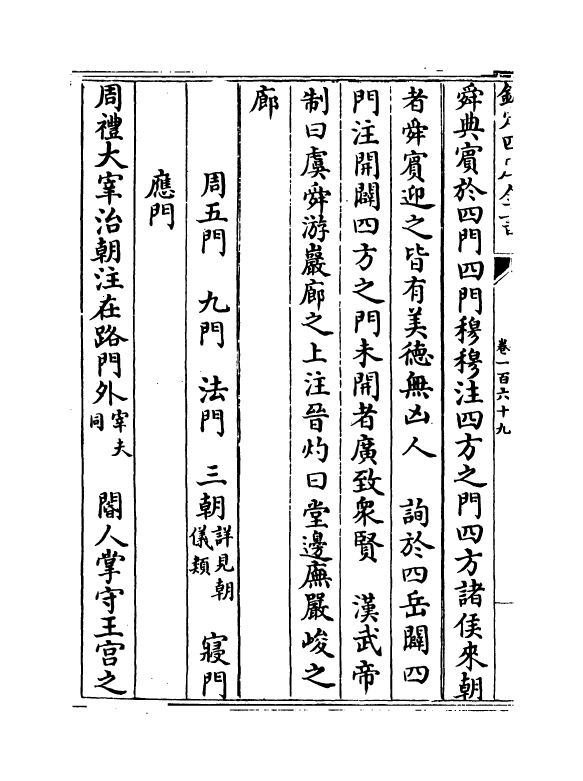 欽定四庫全書
卷一百六十九
舜典賓於四門四門穆穆注四方之門四方諸侯來朝
者舜賓迎之皆有美德無凶人　詢於四岳闢四
門注開闢四方之門未開者廣致衆賢　漢武帝
制曰虞舜游巖廊之上注晉灼曰堂邊廡巖峻之
廊
周五門　九門　法門　三朝詳見朝儀類　寢門
應門
周禮大宰治朝注在路門外宰夫同　閽人掌守王宮之